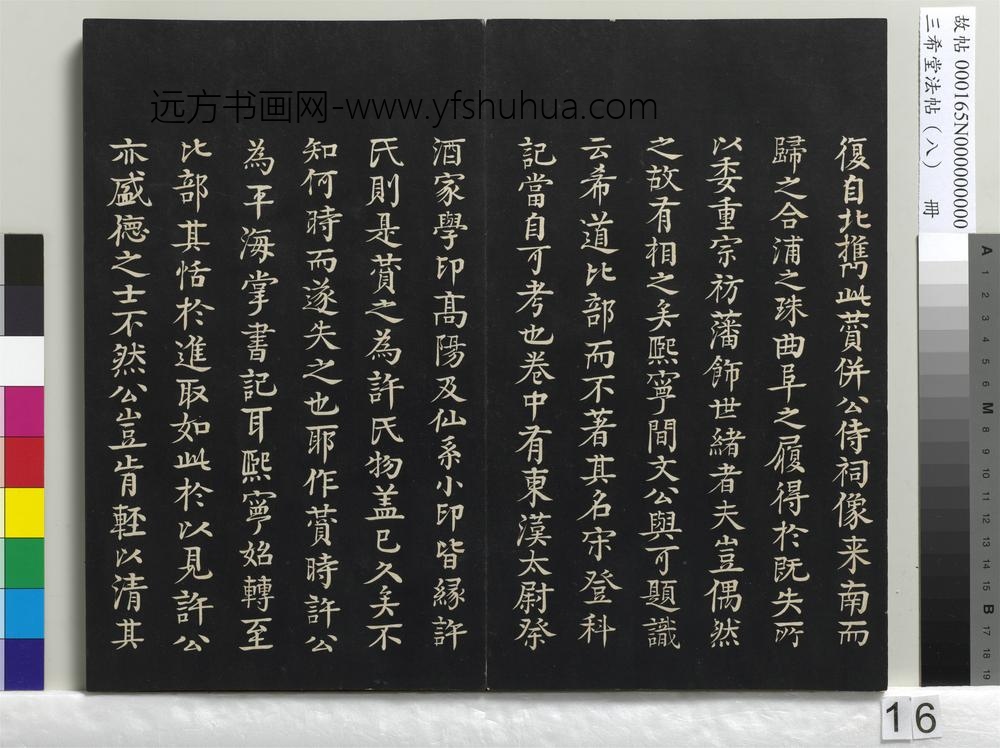 復自北攜此蕒併公侍祠像来南而
歸之合浦之珠曲阜之履得於既失所
以委重宗祊藩飾世緒者夫豈偶然
之故有相之矣熙寧間文公與可題識
云希道比部而不著其名宋登科
記當自可考也卷中有東漢太尉祭
酒家學印高陽及仙系小印皆縁許
氏則是蕒之為許氏物盖已久矣不
知何時而遂失之也耶作蕒時許公
為平海掌書記耳熙寧始轉至
比部其恬於進取如此於以見許公
亦盛德之士不然公豈肯輕以清其
远方书画网-www.yfshuhua.com
故帖 000165N000000000
三希堂法帖（八） 冊
A 1 2 3 4 5 6 M 8 9 10 11 12 13 14 15 B 17 18 19
16